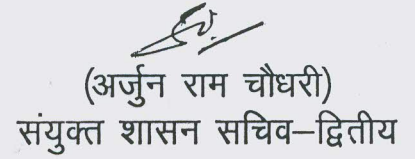 (अर्जुन राम चौधरी)
संयुक्त शासन सचिव–द्वितीय